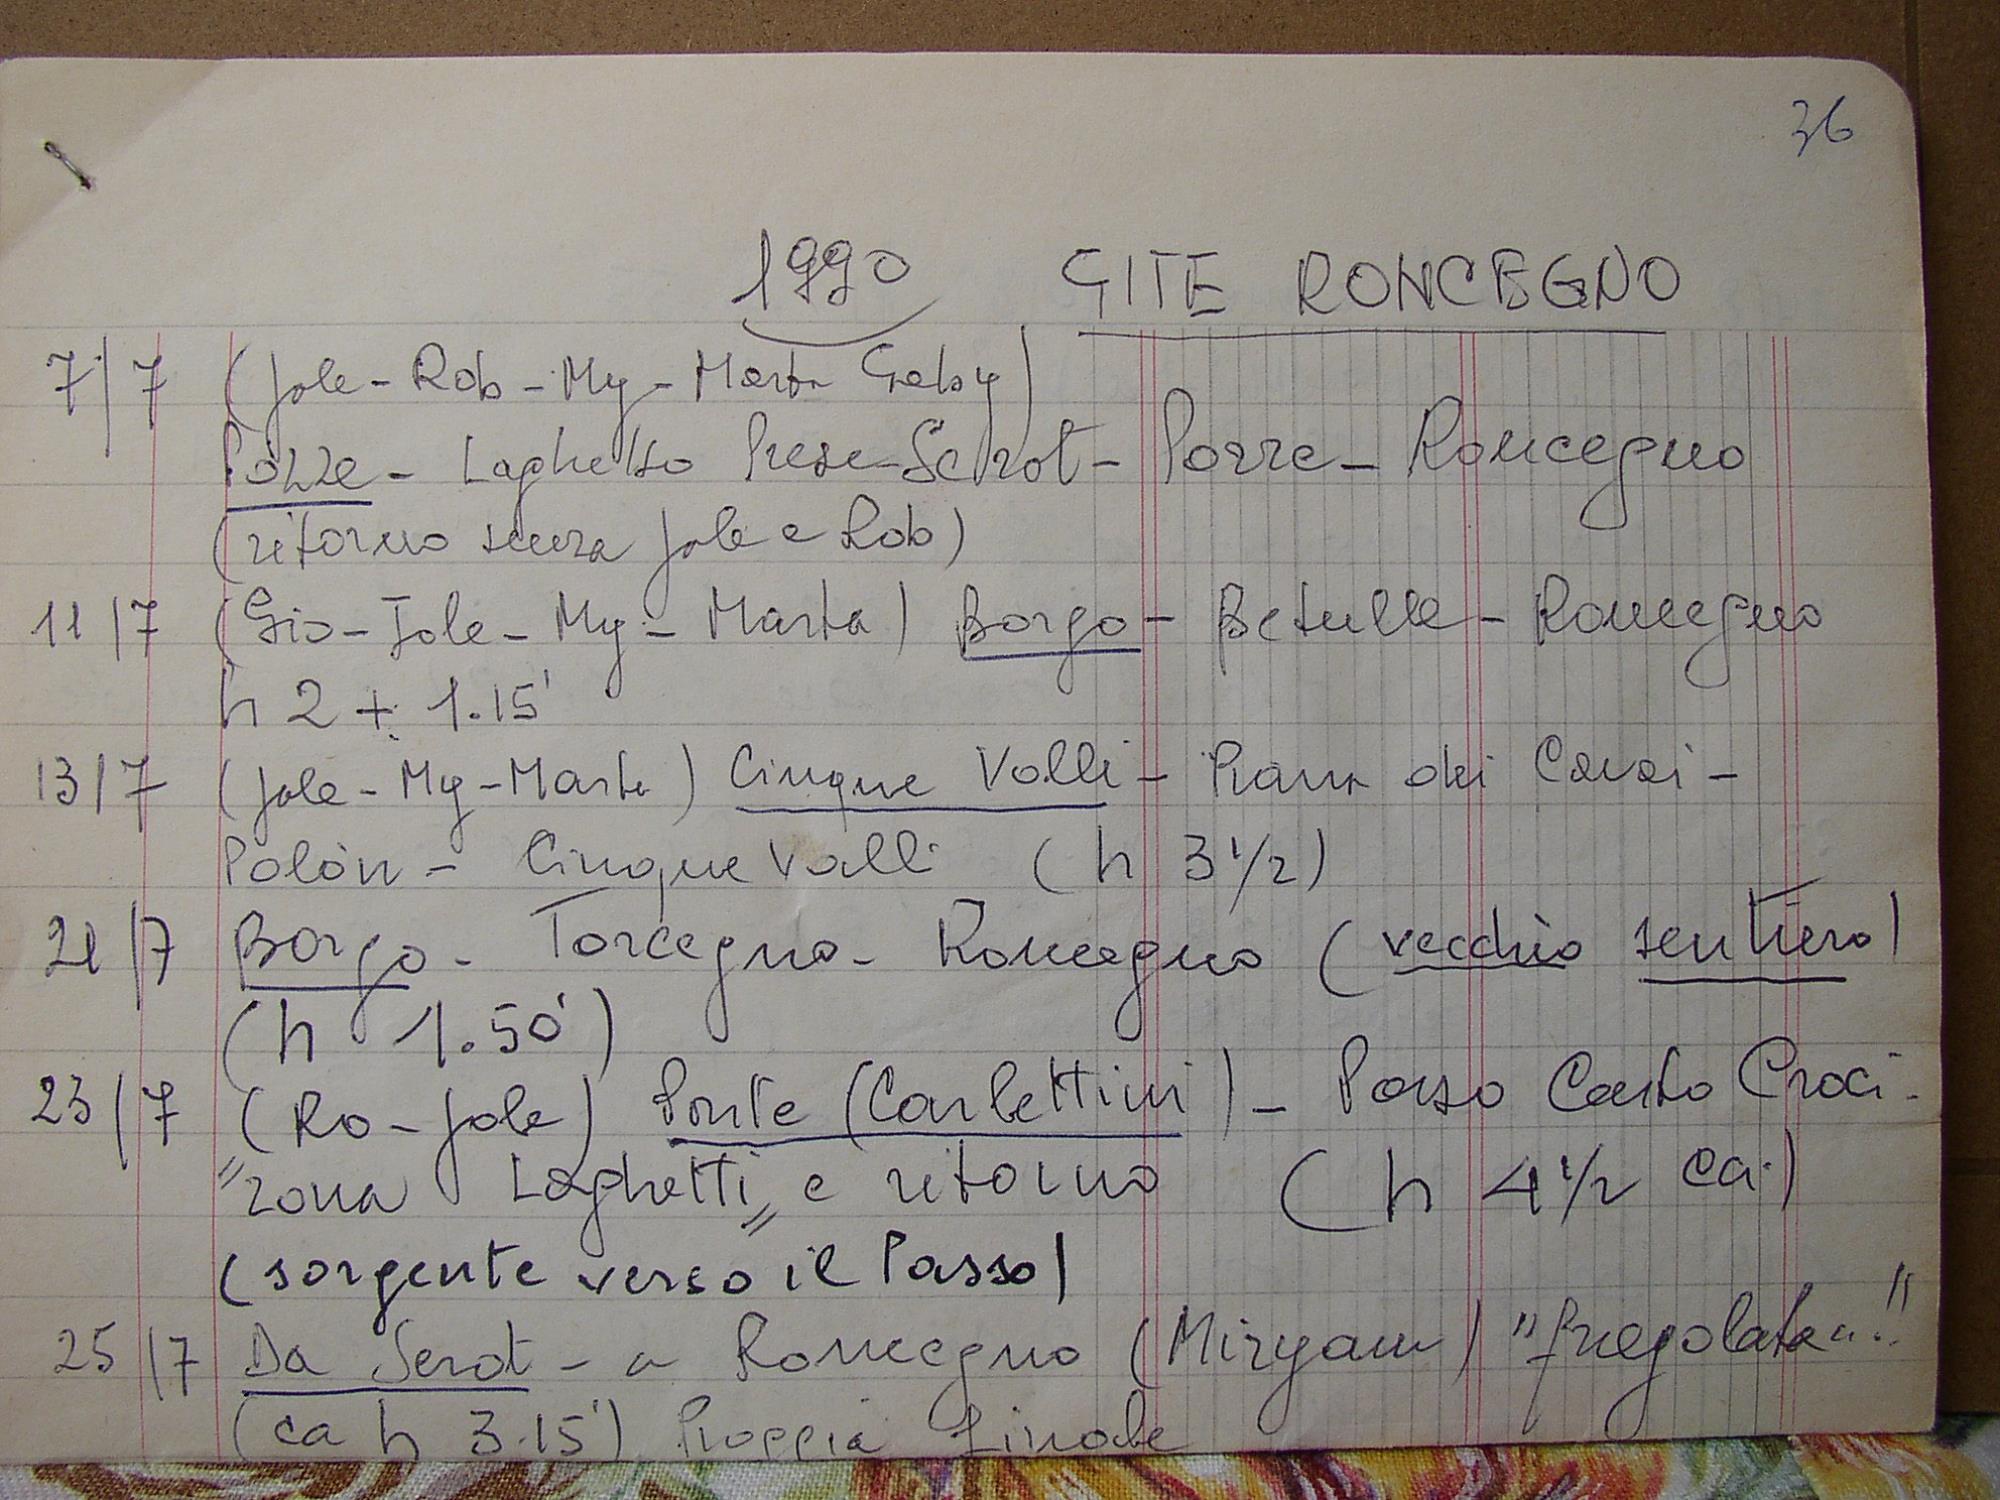 36
1990 GITE RONCEGNO
7/7 (Jole - Rob - My - Marta Gaby)
Pozze - Laghetto Prese - Serot - Porre - Roncegno
(ritorno senza Jole e Rob)
11/7 (Gio - Jole - My - Marta) Borgo - Betulle - Roncegno
h 2 + 1.15'
13/7 (Jole - My - Marta) Cinque Valli - Piana dei Cavai -
Polòn - Cinque Valli (h 3 1/2)
21/7 Borgo - Torcegno - Roncegno (vecchio sentiero)
(h 1.50')
23/7 (Ro - Jole) Ponte (Carlettini) - Passo Cinque Croci -
"zona Laghetti" e ritorno (h 4 1/2 ca.)
(sorgente verso il Passo)
25/7 Da Serot - a Roncegno (Miryam) "fregolata"!!
(ca h 3.15') Pioggia finale